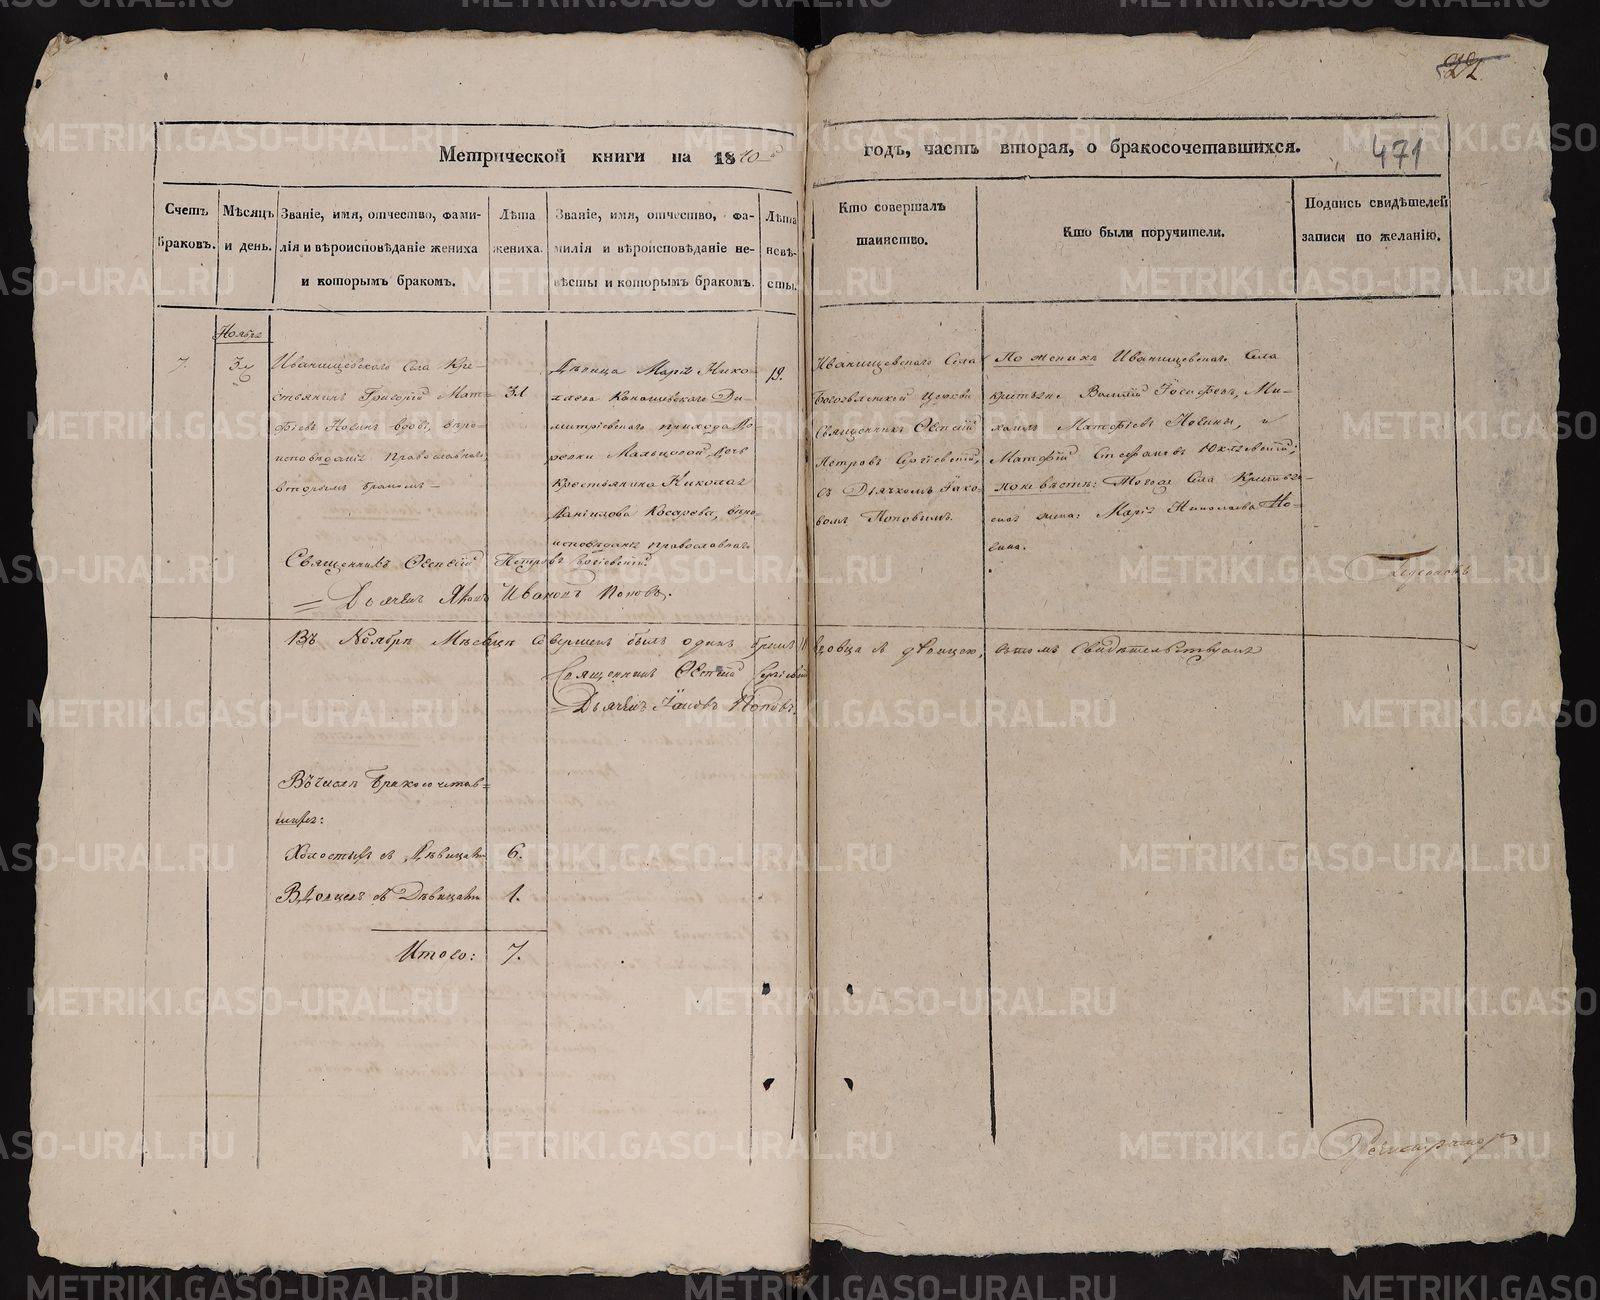 22
Метрической книги на 1840 годъ, часть вторая, о бракосочетавшихся.
471
Счетъ браковъ.
Мѣсяцъ и день.
Званіе, имя, отчество, фами-
лія и вѣроисповѣданіе жениха
и которымъ бракомъ.
Лѣта
жениха.
Званіе, имя, отчество, фа-
милія и вѣроисповѣданіе не-
вѣсты и которымъ бракомъ.
Лѣта
невѣ-
сты.
Кто совершалъ
таинство.
Кто были поручители.
Подпись свидѣтелей
записи по желанію.
Ноября
7.
3
Иванищевскаго Села Кре-
стьянинъ Григорій Мат-
фіевъ вдовъ, вѣро-
исповѣданія православнаго,
вторымъ бракомъ
31
Дѣвица Марія Нико-
лаева Канашевскаго Ди-
митріевскаго прихода До-
ревни Мальцовой, дочь
Крестьянина Николая
Данилова Косарева, вѣро-
исповѣданія православнаго
19.
Иванищевскаго Села
Богоявленской Церкви
Священникъ Евгеній
Петровъ Сергіевскій,
съ Дьячкомъ Іако-
вомъ Поповымъ.
По женихѣ Иванищевскаго Села
Крестьяне Василій Іосифовъ, Ми-
хаилъ Матфіевъ и
Матфій Стефановъ
по невѣстѣ: Тогоже Села Крестьян-
ская жена: Марія Николаева
Священникъ Евгеній Петровъ Сергіевскій
Дьячекъ Яковъ Ивановъ Поповъ.
Въ Ноябрѣ Мѣсяцѣ совершенъ былъ одинъ бракъ вдовца съ дѣвицею, въ томъ Свидѣтельствуемъ
Священникъ Евгеній Сергіевскій
Дьячекъ Іаковъ Поповъ.
Въ числѣ Бракосочетав-
шихся:
Холостыхъ съ Дѣвицами 6.
Вдовцовъ съ Дѣвицами 1.
Итого: 7.
Регистраторъ
METRIKI.GASO-URAL.RU